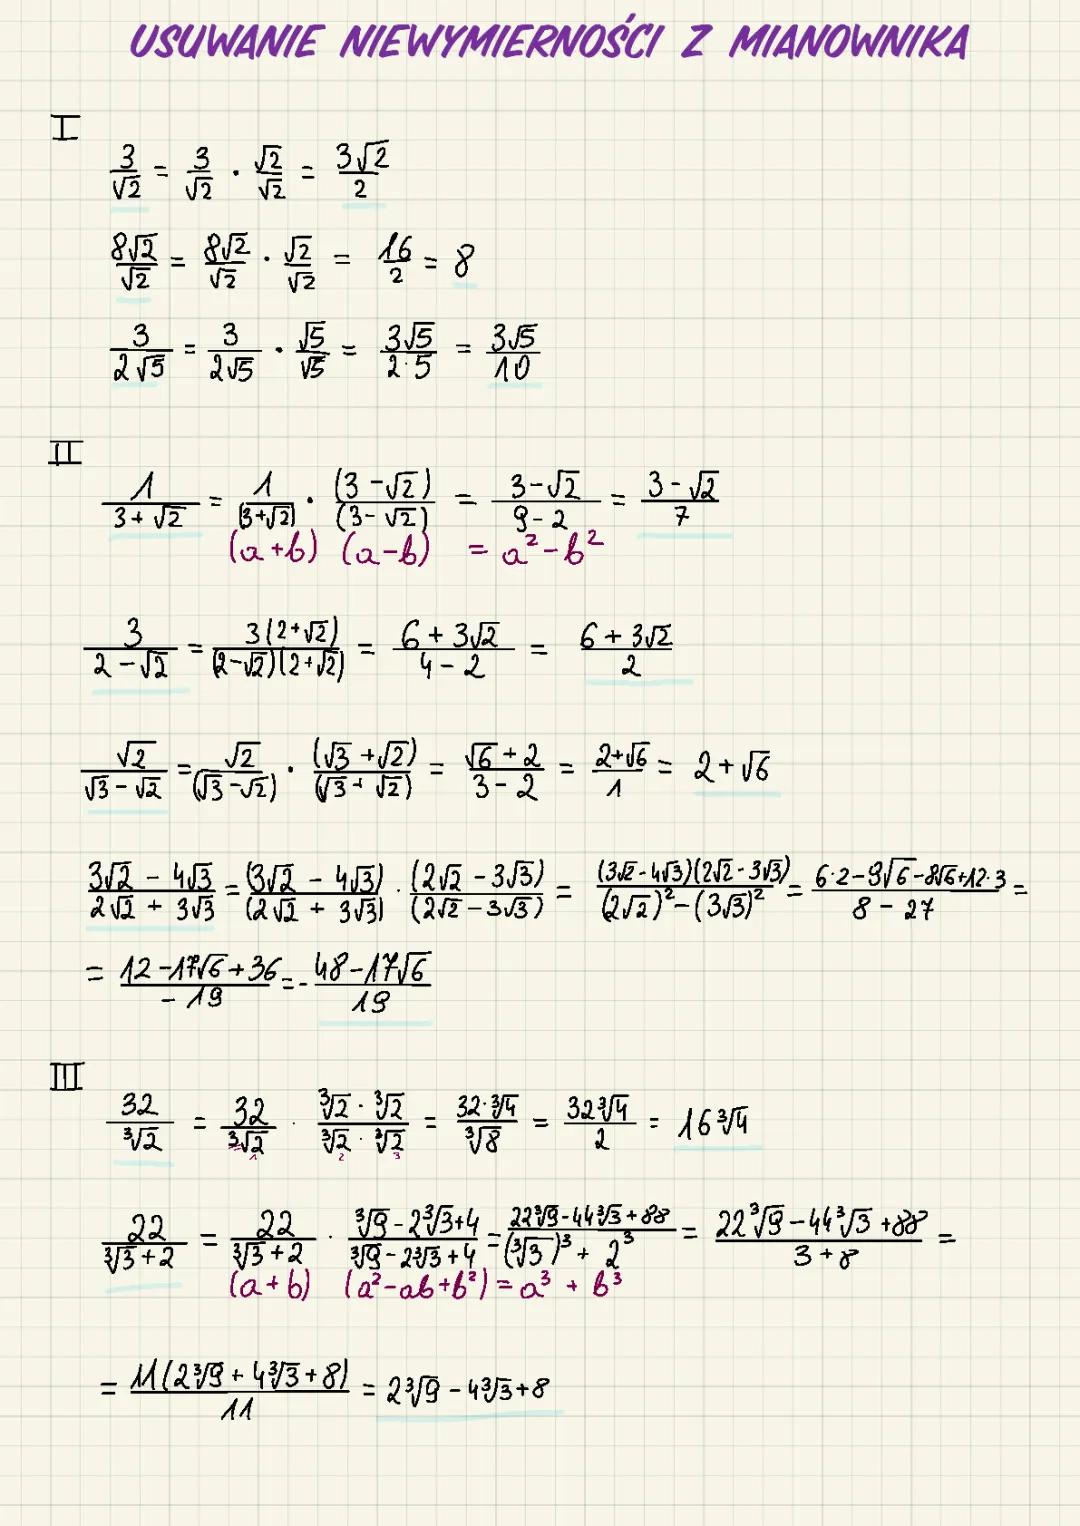 USUWANIE NIEWYMIERNOŚCI Z MIANOWNIKA
I
3/√2 = 3/√2 · √2/√2 = 3√2/2
8√2/√2 = 8√2/√2 · √2/√2 = 16/2 = 8
3/2√5 = 3/2√5 · √5/√5 = 3√5/2·5 = 3√5/10
II
1/3+√2 = 1/(3+√2) · (3-√2)/(3-√2) = 3-√2/9-2 = 3-√2/7
(a+b) (a-b) = a²-b²
3/2-√2 = 3(2+√2)/(2-√2)(2+√2) = 6+3√2/4-2 = 6+3√2/2
√2/√3-√2 = √2/(√3-√2) · (√3+√2)/(√3+√2) = √6+2/3-2 = 2+√6/1 = 2+√6
3√2-4√3/2√2+3√3 = (3√2-4√3)/(2√2+3√3) · (2√2-3√3)/(2√2-3√3) = (3√2-4√3)(2√2-3√3)/(2√2)²-(3√3)² = 6·2-9√6-8√6+12·3/8-27 =
= 12-17√6+36/-19 = - 48-17√6/19
III
32/∛2 = 32/∛2 · ∛2·∛2/∛2·∛2 = 32·∛4/∛8 = 32∛4/2 = 16∛4
1 2 3
22/∛3+2 = 22/∛3+2 · ∛9-2∛3+4/∛9-2∛3+4 = 22∛9-44∛3+88/(∛3)³+2³ = 22∛9-44∛3+88/3+8 =
(a+b) (a²-ab+b²) = a³+b³
= 11(2∛9+4∛3+8)/11 = 2∛9-4∛3+8